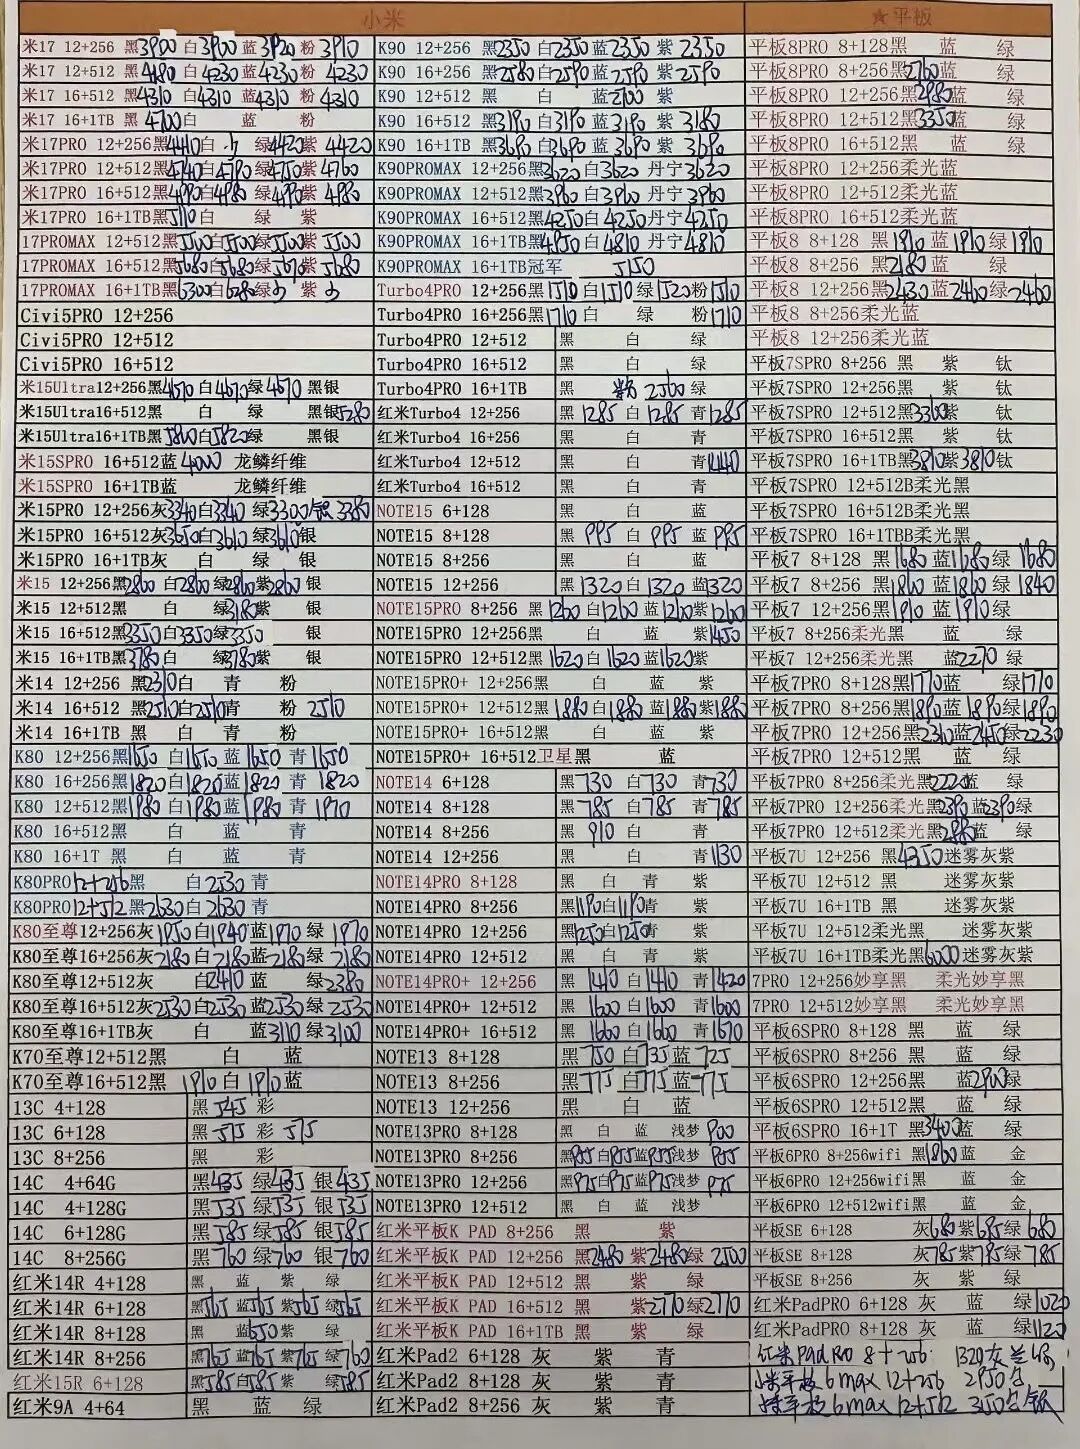 小米
米17 12+256 黑3900 白3900 蓝3920 粉3910
米17 12+512 黑4180 白4230 蓝4230 粉 4230
米17 16+512 黑4310 白4310 蓝4310 粉 4310
米17 16+1TB 黑 4700白 蓝 粉
米17PRO 12+256黑4410白 绿4420紫 4420
米17PRO 12+512黑4740白4790绿4750紫4760
米17PRO 16+512黑4990白4980绿4990紫4980
米17PRO 16+1TB黑5110白 绿 紫
17PROMAX 12+512黑5500白5500绿5500紫5500
17PROMAX 16+512黑5680白5680绿5670紫5680
17PROMAX 16+1TB黑6300白6280绿 紫
Civi5PRO 12+256
Civi5PRO 12+512
Civi5PRO 16+512
米15Ultra12+256黑4670白4670绿4670 黑银
米15Ultra16+512黑 白 绿 黑银5280
米15Ultra16+1TB黑5800白5820绿 黑银
米15SPRO 16+512蓝4000 龙鳞纤维
米15SPRO 16+1TB蓝 龙鳞纤维
米15PRO 12+256灰3340白3340 绿3300银3380
米15PRO 16+512灰3650白3610绿3610银
米15PRO 16+1TB灰 白 绿 银
米15 12+256黑2800白2860绿2860紫2860 银
米15 12+512黑 白 绿3180紫 银
米15 16+512黑3350白3350绿3350 银
米15 16+1TB黑3780白 绿3780紫 银
米14 12+256 黑2310白 青 粉
米14 16+512 黑2510白2510青 粉 2510
米14 16+1TB 黑 白 青 粉
K80 12+256黑1650 白1650蓝1650 青1650
K80 16+256黑1820 白1820蓝1820 青 1820
K80 12+512黑1980 白1980蓝1980 青 1970
K80 16+512黑 白 蓝 青
K80 16+1T 黑 白 蓝 青
K80PRO12+256黑 白2530 青
K80PRO12+512黑2630白2630 青
K80至尊12+256灰1950白1940蓝1970 绿 1970
K80至尊16+256灰2180白2180蓝2180 绿 2180
K80至尊12+512灰 白2410 蓝 绿2380
K80至尊16+512灰2530白2530蓝2530 绿 2530
K80至尊16+1TB灰 白 蓝3110绿3100
K70至尊12+512黑 白 蓝
K70至尊16+512黑 1910白1910蓝
13C 4+128 黑 545 彩
13C 6+128 黑 575 彩 575
13C 8+256 黑 彩
14C 4+64G 黑435 绿435 银435
14C 4+128G 黑535 绿535 银535
14C 6+128G 黑585 绿585 银585
14C 8+256G 黑760 绿760 银760
红米14R 4+128 黑 蓝 紫 绿
红米14R 6+128 黑565蓝565紫565绿565
红米14R 8+128 黑 蓝650紫 绿
红米14R 8+256 黑765蓝765紫765绿760
红米15R 6+128 黑585白585紫 绿585
红米9A 4+64 黑 蓝 绿
K90 12+256 黑2350 白2350蓝2350 紫 2350
K90 16+256 黑2580白2590蓝2590 紫 2590
K90 12+512 黑 白 蓝2700 紫
K90 16+512 黑3190白3190蓝3190 紫 3180
K90 16+1TB 黑3690白3690蓝3690 紫 3690
K90PROMAX 12+256黑3620白3620 丹宁3620
K90PROMAX 12+512黑3960白3960 丹宁 3960
K90PROMAX 16+512黑4250白4250丹宁4250
K90PROMAX 16+1TB黑4850白4810 丹宁 4810
K90PROMAX 16+1TB冠军 5150
Turbo4PRO 12+256黑1510白1510绿1520粉1510
Turbo4PRO 16+256黑1710白 绿 粉1710
Turbo4PRO 12+512 黑 白 绿
Turbo4PRO 16+512 黑 白 绿
Turbo4PRO 16+1TB 黑 粉 2500绿
红米Turbo4 12+256 黑 1285 白 1285 青1285
红米Turbo4 16+256 黑 白 青
红米Turbo4 12+512 黑 白 青1440
红米Turbo4 16+512 黑 白 青
NOTE15 6+128 黑 白 蓝
NOTE15 8+128 黑 995 白 995 蓝 995
NOTE15 8+256 黑 白 蓝
NOTE15 12+256 黑1320白1320 蓝1320
NOTE15PRO 8+256 黑1200白1200蓝1200紫1200
NOTE15PRO 12+256黑 白 蓝 紫1450
NOTE15PRO 12+512黑1620白1620蓝1620紫
NOTE15PRO+ 12+256黑 白 蓝 紫
NOTE15PRO+ 12+512黑1880白1880蓝1880紫1880
NOTE15PRO+ 16+512黑 白 蓝 紫
NOTE15PRO+ 16+512卫星黑 蓝
NOTE14 6+128 黑730白730 青730
NOTE14 8+128 黑785白785 青785
NOTE14 8+256 黑 910白 青
NOTE14 12+256 黑 白 青1130
NOTE14PRO 8+128 黑 白 青 紫
NOTE14PRO 8+256 黑1190白1190青 紫
NOTE14PRO 12+256 黑1250白1250青 紫
NOTE14PRO 12+512 黑 白 青 紫
NOTE14PRO+ 12+256 黑 1410白1410 青1420
NOTE14PRO+ 12+512 黑 1600白1600 青1600
NOTE14PRO+ 16+512 黑 1660白1660 青1670
NOTE13 8+128 黑750白735蓝725
NOTE13 8+256 黑775白775蓝775
NOTE13 12+256 黑 白 蓝
NOTE13PRO 8+128 黑 白 蓝 浅梦 900
NOTE13PRO 8+256 黑955白955蓝955浅梦 955
NOTE13PRO 12+256 黑975白975蓝975浅梦 975
NOTE13PRO 12+512 黑 白 蓝 浅梦
红米平板K PAD 8+256 黑 紫
红米平板K PAD 12+256 黑2480紫2480绿 2500
红米平板K PAD 12+512 黑 紫 绿
红米平板K PAD 16+512 黑 紫2770绿2770
红米平板K PAD 16+1TB 黑 紫 绿
红米Pad2 6+128 灰 紫 青
红米Pad2 8+128 灰 紫 青
红米Pad2 8+256 灰 紫 青
★平板
平板8PRO 8+128黑 蓝 绿
平板8PRO 8+256黑2760蓝 绿
平板8PRO 12+256黑2980蓝 绿
平板8PRO 12+512黑3350蓝 绿
平板8PRO 16+512黑 蓝 绿
平板8PRO 12+256柔光蓝
平板8PRO 12+512柔光蓝
平板8PRO 16+512柔光蓝
平板8 8+128 黑1910 蓝1910绿1910
平板8 8+256 黑2180蓝 绿
平板8 12+256黑2430蓝2400绿2400
平板8 8+256柔光蓝
平板8 12+256柔光蓝
平板7SPRO 8+256 黑 紫 钛
平板7SPRO 12+256黑 紫 钛
平板7SPRO 12+512黑3360紫 钛
平板7SPRO 16+512黑 紫 钛
平板7SPRO 16+1TB黑3810紫3810钛
平板7SPRO 12+512B柔光黑
平板7SPRO 16+512B柔光黑
平板7SPRO 16+1TBB柔光黑
平板7 8+128 黑1680蓝1680绿 1680
平板7 8+256 黑1860蓝1860绿 1840
平板7 12+256黑1910蓝1910绿
平板7 8+256柔光黑 蓝 绿
平板7 12+256柔光黑 蓝2270 绿
平板7PRO 8+128黑1770蓝 绿1770
平板7PRO 8+256黑1890蓝1890绿1890
平板7PRO 12+256黑2310蓝2450绿2230
平板7PRO 12+512黑 蓝 绿
平板7PRO 8+256柔光黑2220蓝 绿
平板7PRO 12+256柔光黑2390蓝2390绿
平板7PRO 12+512柔光黑2980蓝 绿
平板7U 12+256 黑4350迷雾灰紫
平板7U 12+512 黑 迷雾灰紫
平板7U 16+1TB 黑 迷雾灰紫
平板7U 12+512柔光黑 迷雾灰紫
平板7U 16+1TB柔光黑6000迷雾灰紫
7PRO 12+256妙享黑 柔光妙享黑
7PRO 12+512妙享黑 柔光妙享黑
平板6SPRO 8+128 黑 蓝 绿
平板6SPRO 8+256 黑 蓝 绿
平板6SPRO 12+256黑 蓝2900绿
平板6SPRO 12+512黑 蓝 绿
平板6SPRO 16+1T 黑3400蓝 绿
平板6PRO 8+256wifi 黑1860蓝 金
平板6PRO 12+256wifi黑 蓝 金
平板6PRO 12+512wifi黑 蓝 金
平板SE 6+128 灰680紫685绿 680
平板SE 8+128 灰785紫785绿785
平板SE 8+256 灰 紫 绿
红米PadPRO 6+128 灰 蓝 绿1020
红米PadPRO 8+128 灰 蓝 绿1120
红米Pad PRO 8+256 1320灰兰绿
小米平板6max 12+256 2950
平板6max 12+512 350 银